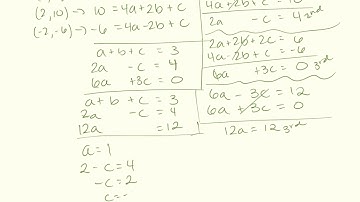 (2, 10) -> 10 = 4a+2b+c
(-2, -6) -> -6 = 4a-2b+c
a+b+c = 3
2a - c = 4
6a +3c = 0
a + b + c = 3
2a - c = 4
12a = 12
a = 1
2 - c = 4
-c = 2
c = -
4a+2b+c = 10
2a - c = 4 2nd
2a + 2b + 2c = 6
4a - 2b + c = -6
6a +3c = 0 3rd
6a - 3c = 12
6a + 3c = 0
12a = 12 3rd